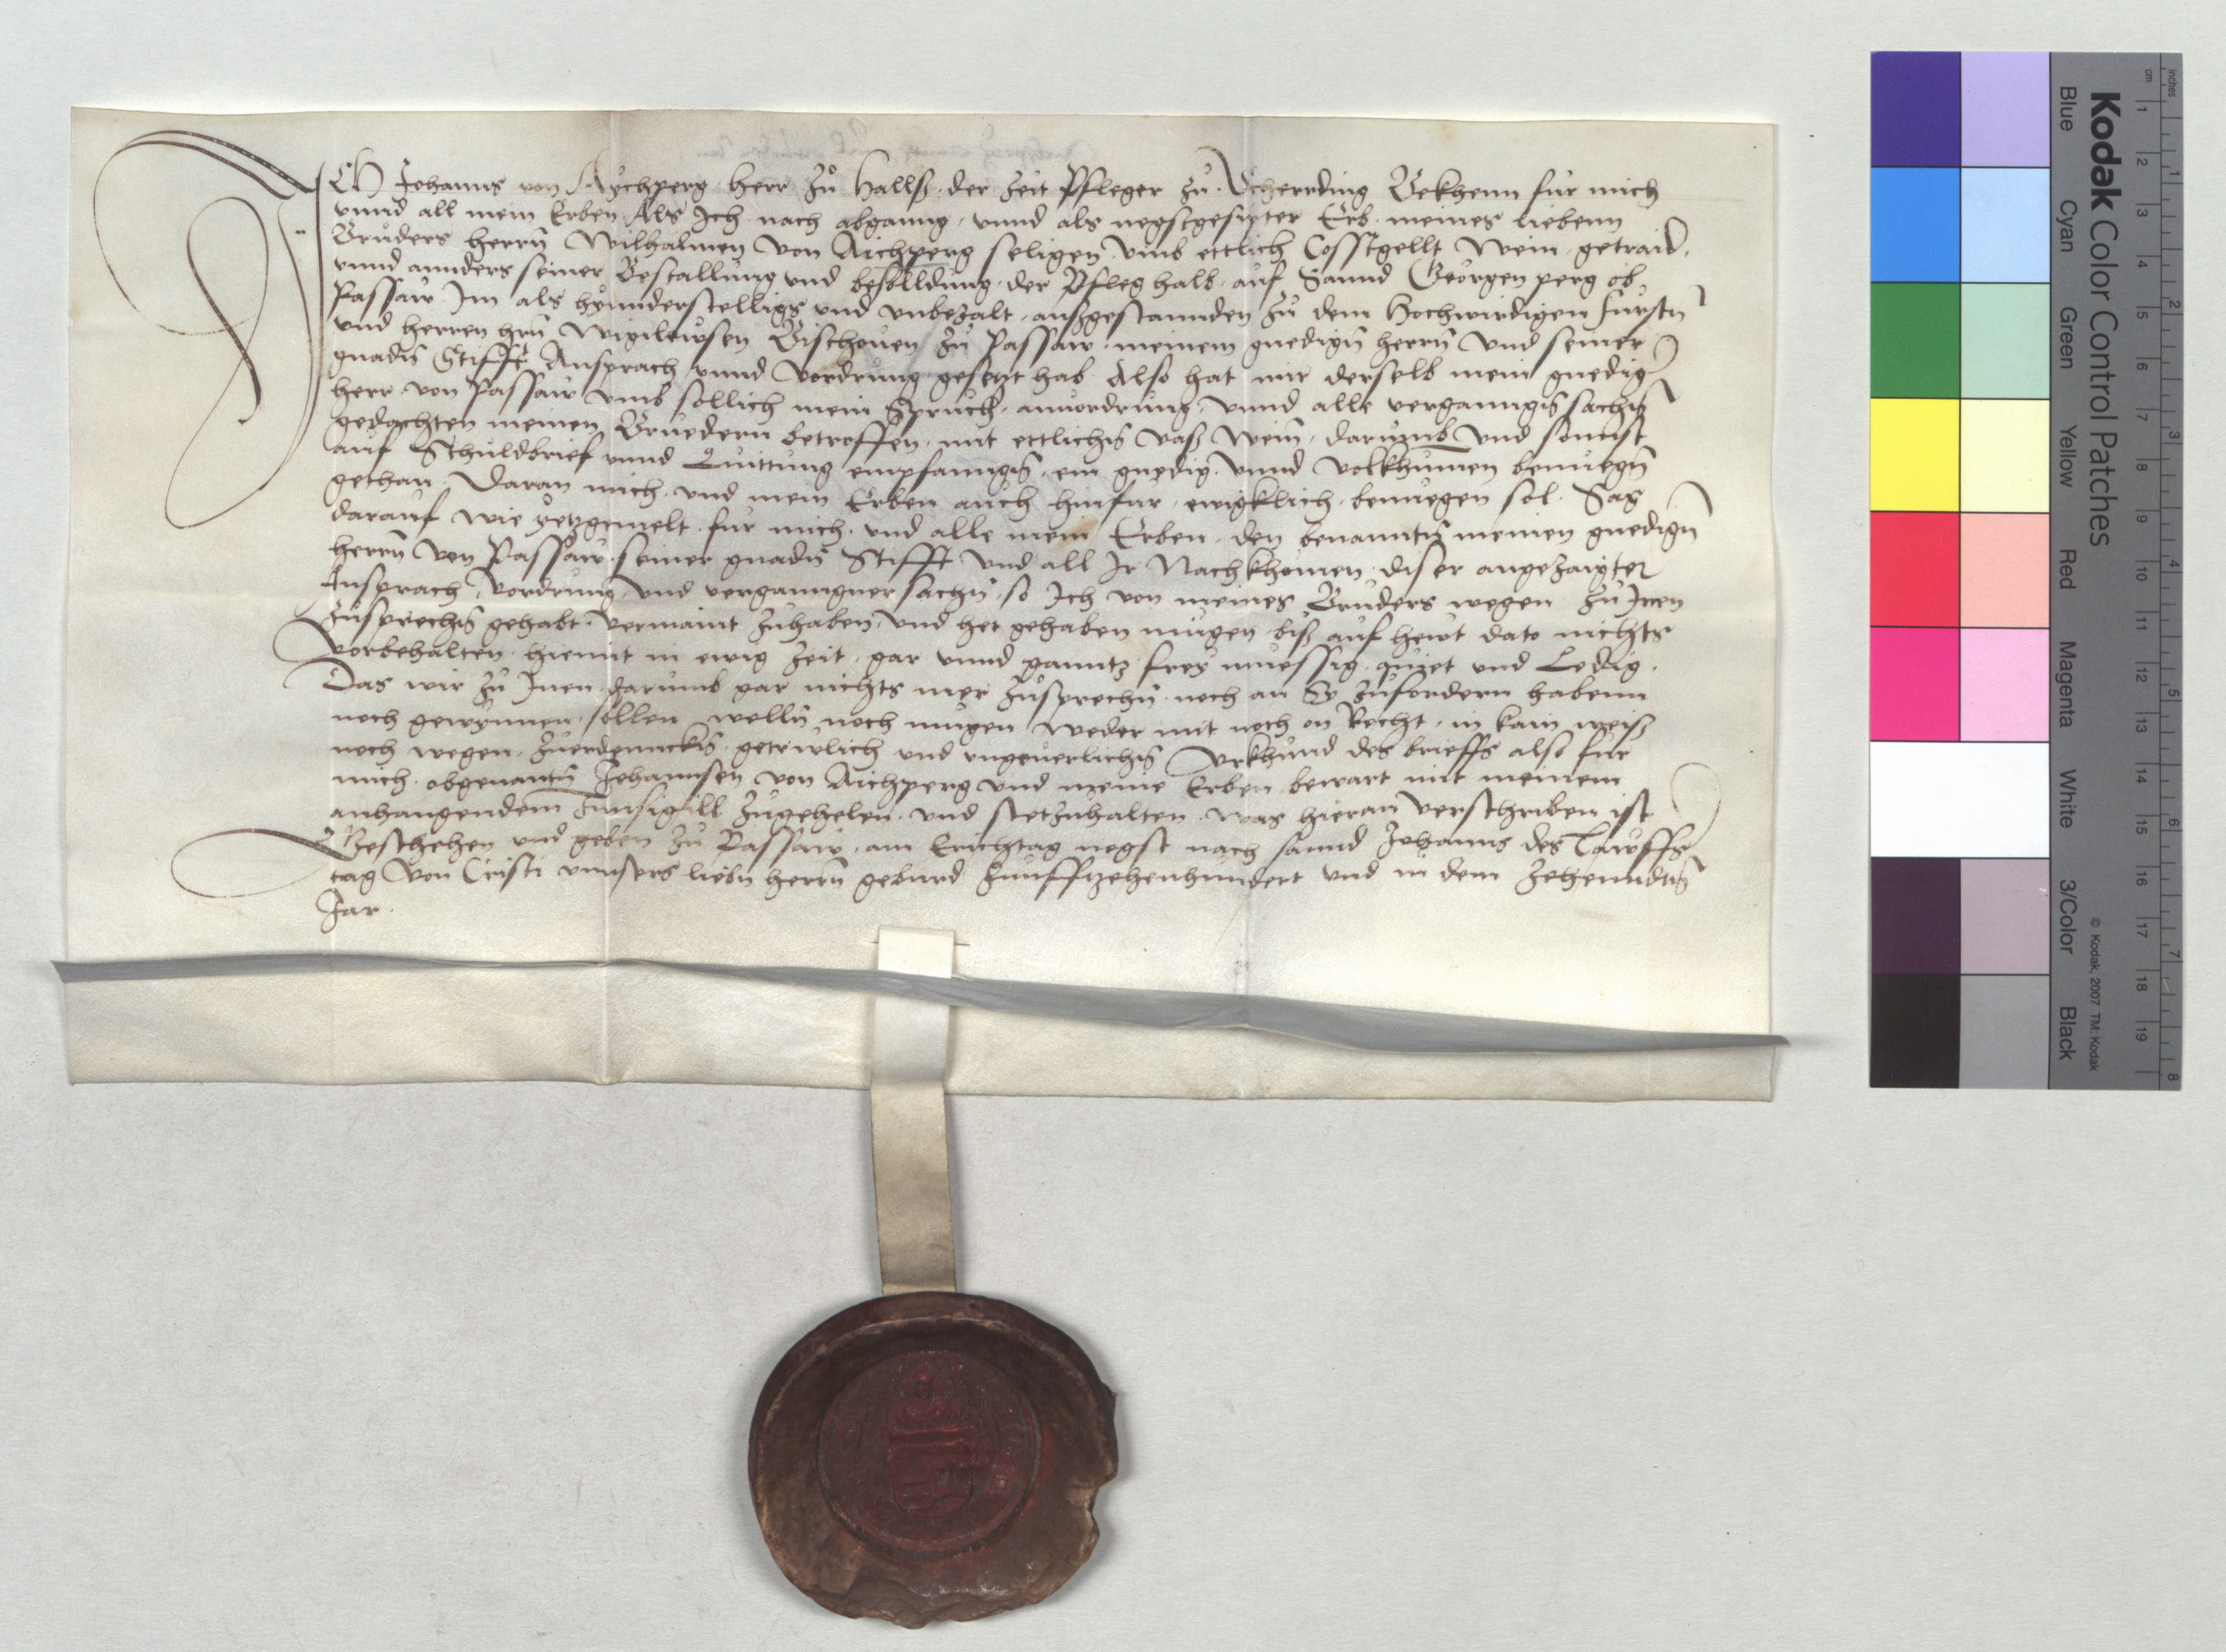 ICH Johanns von Aychperg herr zů Hallß der zeit Pfleger zů Scherrding Bekhenn fůr mich
vnnd all mein Erben Als Ich nach abganng vnnd als negstgesipter Erb meines liebenn
Brůders herrn̄ Wilhalmen von Aichperg seligen vmb ettlich Cosstgellt Wein getraid
vnnd annders seiner Bestallung vnd besolldung der Pfleg halb auf Sannd Georgen perg ob
Passaw Im als hynnderstelligs vnd vnbezalt außgestannden zů dem Hochwirdigen fursten̄
vnd herren hrn̄ Wigilewsen Bischouen zů Passaw meinem gnedign̄ herrn̄ vnd seiner
gnadn̄ Stifft Ansprach vnnd Vordrung gesetzt hab Also hat mir derselb mein gnedig
herr von Passaw vmb sollich mein Spruch anuordrung vnnd alle vergannge sachn̄
gedachten meinen Bruedern betreffen mit ettlichn̄ vaß Wein darumb vnd sonnst
auf Schuldbrief vnnd Quittung empfanngn̄ ein gnedig vnnd volkhumen benuegn̄
gethan Daran mich vnd mein Erben auch hinfur ewigklich benuegen sol Sag
darauf wie yetzgemelt fur mich vnd alle mein Erben den benanntn̄ meinen gnedign̄
herrn̄ von Passaw seiner gnadn̄ Stifft vnd all Ir Nachkhomen diser angezaigter
Ansprach Vordrung vnd vergannngner sachn̄ so Ich von meines Bruders wegen zů Inen
zusprechn̄ gehabt vermaint zuhaben vnd het gehaben mugen biß auf hewt dato nichts
vorbehalten hiemit in ewig zeit gar vnnd ganntz frey muessig quiet vnd Ledig
Das wir zů Inen darumb gar nichts mer zůsprechn̄ noch an Sy zufordern habenn
noch gewynnen sollen welln̄ noch mugen weder mit noch on Recht in kain weiß
noch wegen zuerdennckn̄ getrewlich vnd vngeuerlichn̄ Vrkhund des brieffs also fur
mich obgenantn̄ Johannsen von Aichperg vnd meine Erben bewart mit meinem
anhangendem Innsigill zugehelen vnd stetzuhalten was hieran verschriben ist
Geschehen vnd geben zů Passaw am Erichtag negst nach sannd Johanns des Tawffs
tag Von Cristi vnnsers liebn̄ herrn̄ geburd Funffzehenhundert vnd in dem zehenndtn̄
Jar
Kodak Color Control Patches
Blue Cyan Green Yellow Red Magenta White 3/Color Black
© Kodak, 2007 TM: Kodak
cm 1 2 3 4 5 6 7 8 9 10 11 12 13 14 15 16 17 18 19
inches 1 2 3 4 5 6 7 8